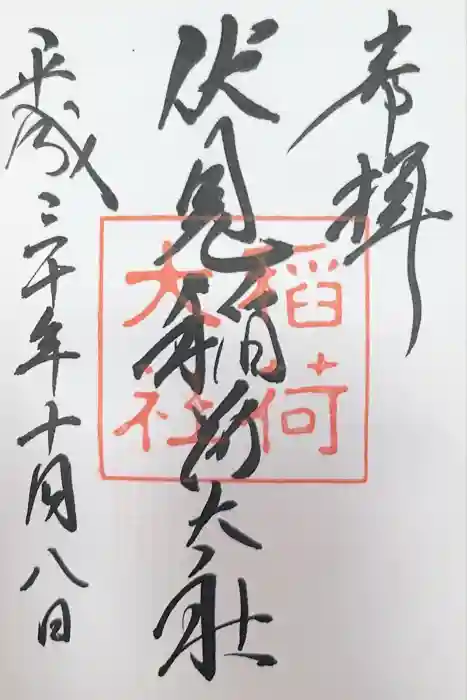 奉拝
伏見稲荷大社
稲荷
大社
平成三十年十月八日